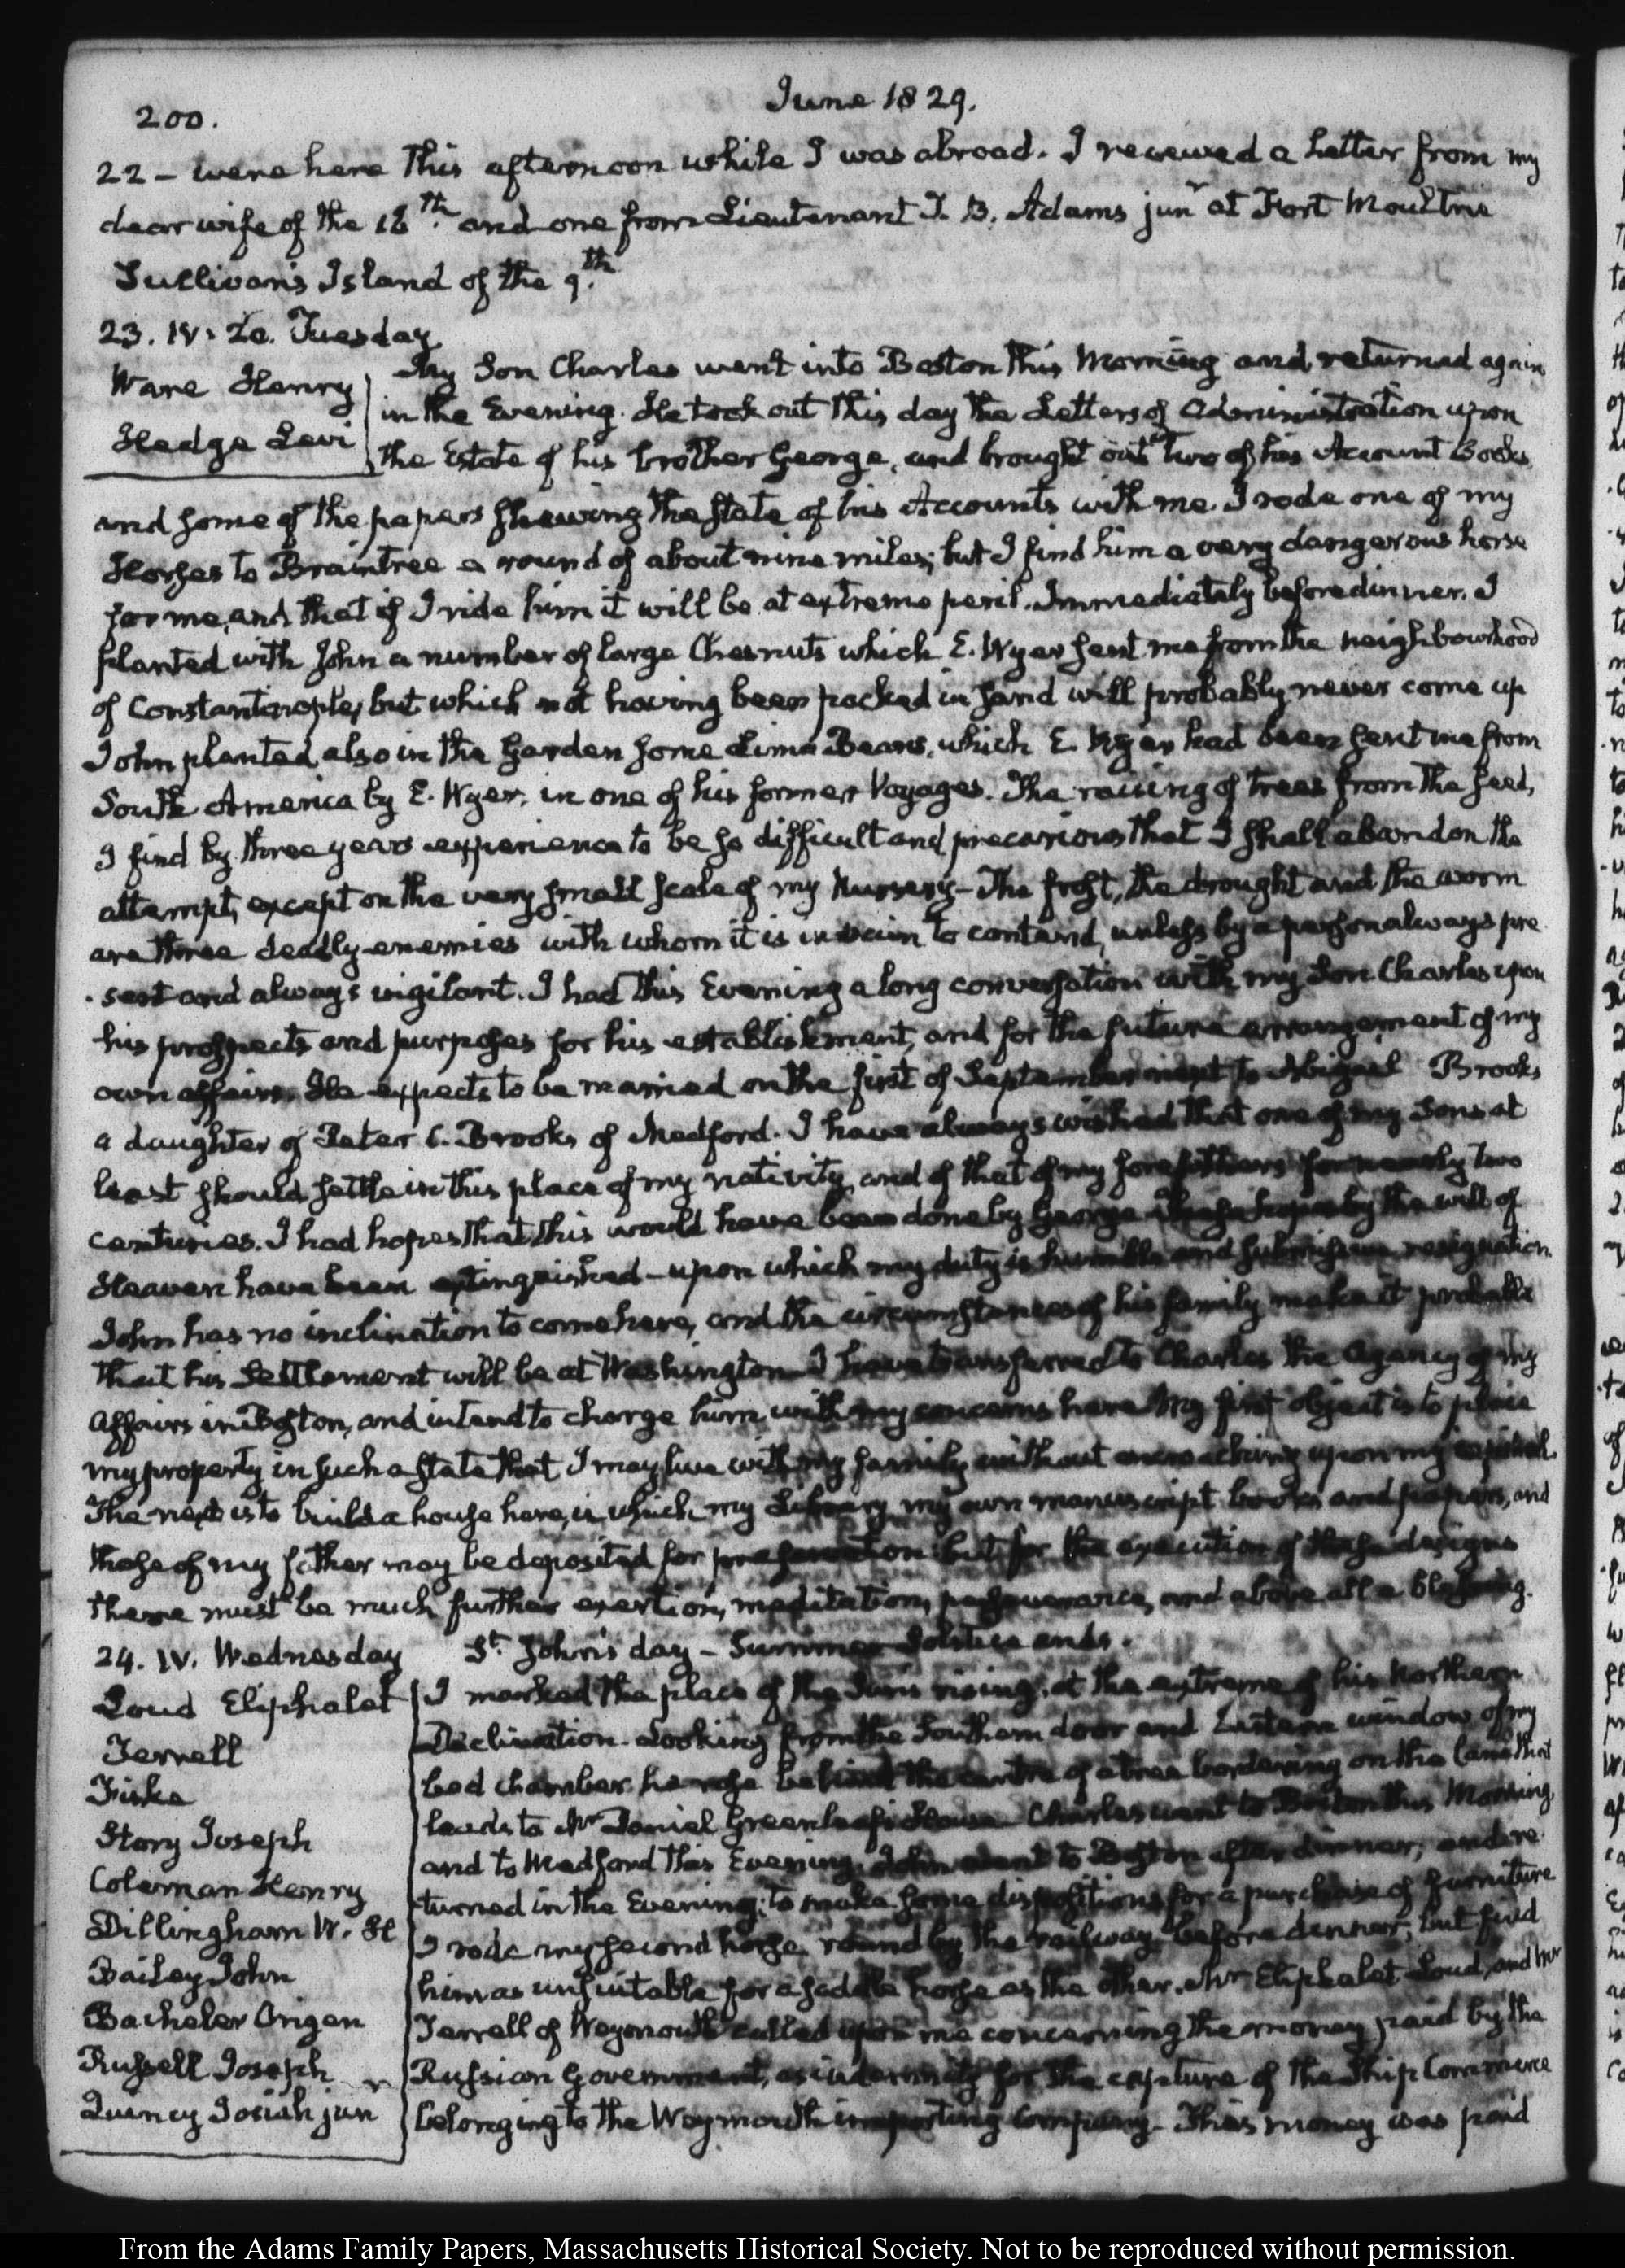 200.
June 1829.
22 - were here this afternoon while I was abroad. I received a Letter from my
dear wife of the 16th. and one from Lieutenant T. B. Adams junr at Fort Moultrie
Sullivan's Island of the 9.th
23. IV. 20. Tuesday
Ware Henry
Hedge Levi
My Son Charles went into Boston this Morning and returned again
in the Evening. He took out this day the Letters of Administration upon
the Estate of his brother George, and brought out two of his Account Books
and some of the papers shewing the state of his Accounts with me. I rode one of my
Horses to Braintree a round of about nine miles; but I find him a very dangerous horse
for me, and that if I ride him it will be at extreme peril. Immediately before dinner. I
planted with John a number of large Chesnuts which E. Wyer sent me from the neighbourhood
of Constantinople, but which not having been packed in sand will probably never come up
John planted also in the Garden some Lima Beans, which E. Wyer had been sent me from
South America by E. Wyer, in one of his former Voyages. The raising of trees from the seed,
I find by three years experience to be so difficult and precarious that I shall abandon the
attempt, except on the very small scale of my Nursery - The frost, the drought and the worm
are three deadly enemies with whom it is in vain to contend, unless by a person always pre
-sent and always vigilant. I had this Evening a long conversation with my Son Charles upon
his prospects and purposes for his establishment, and for the future arrangement of my
own affairs. He expects to be married on the first of September next to Abigail Brooks
a daughter of Peter C. Brooks of Medford. I have always wished that one of my Sons at
least should settle in this place of my nativity, and of that of my forefathers for nearly two
centuries. I had hopes that this would have been done by George - These hopes by the will of
Heaven have been extinguished - upon which my duty is humble and submissive resignation
John has no inclination to come here, and the circumstances of his family make it probable
that his Settlement will be at Washington - I have transferred to Charles the Agency of my
Affairs in Boston, and intend to charge him with my concerns here. My first object is to place
my property in such a state that I may live with my family without encroaching upon my capital.
The next is to build a house here, in which my Library, my own manuscript books and papers, and
those of my father may be deposited for preservation. but for the execution of these designs
there must be much further exertion, meditation, perseverance, and above all a blessing.
24. IV. Wednesday St. John's day - Summer Solstice ends.
Loud Eliphalet
Terrell
Fiske
Story Joseph
Coleman Henry
Dillingham W. H
Bailey John
Bacheler Origen
Russell Joseph
Quincy Josiah jun
I marked the place of the Sun's rising, at the extreme of his Northern
Declination. Looking from the Southern door and Eastern window of my
bed chamber he rose behind the centre of a tree bordering on the lane that
leads to Mr Daniel Greenleaf's House. Charles went to Boston this Morning,
and to Medford this Evening. John went to Boston after dinner, and re
turned in the Evening; to make some dispositions for a purchase of furniture
I rode my second horse, round by the railway before dinner, but find
him as unsuitable for a saddle horse as the other. Mr Eliphalet Loud, and Mr
Terrell of Weymouth called upon me concerning the money paid by the
Russian Government, as indemnity for the capture of the Ship Commerce
belonging to the Weymouth importing Company - This money was paid
From the Adams Family Papers, Massachusetts Historical Society. Not to be reproduced without permission.